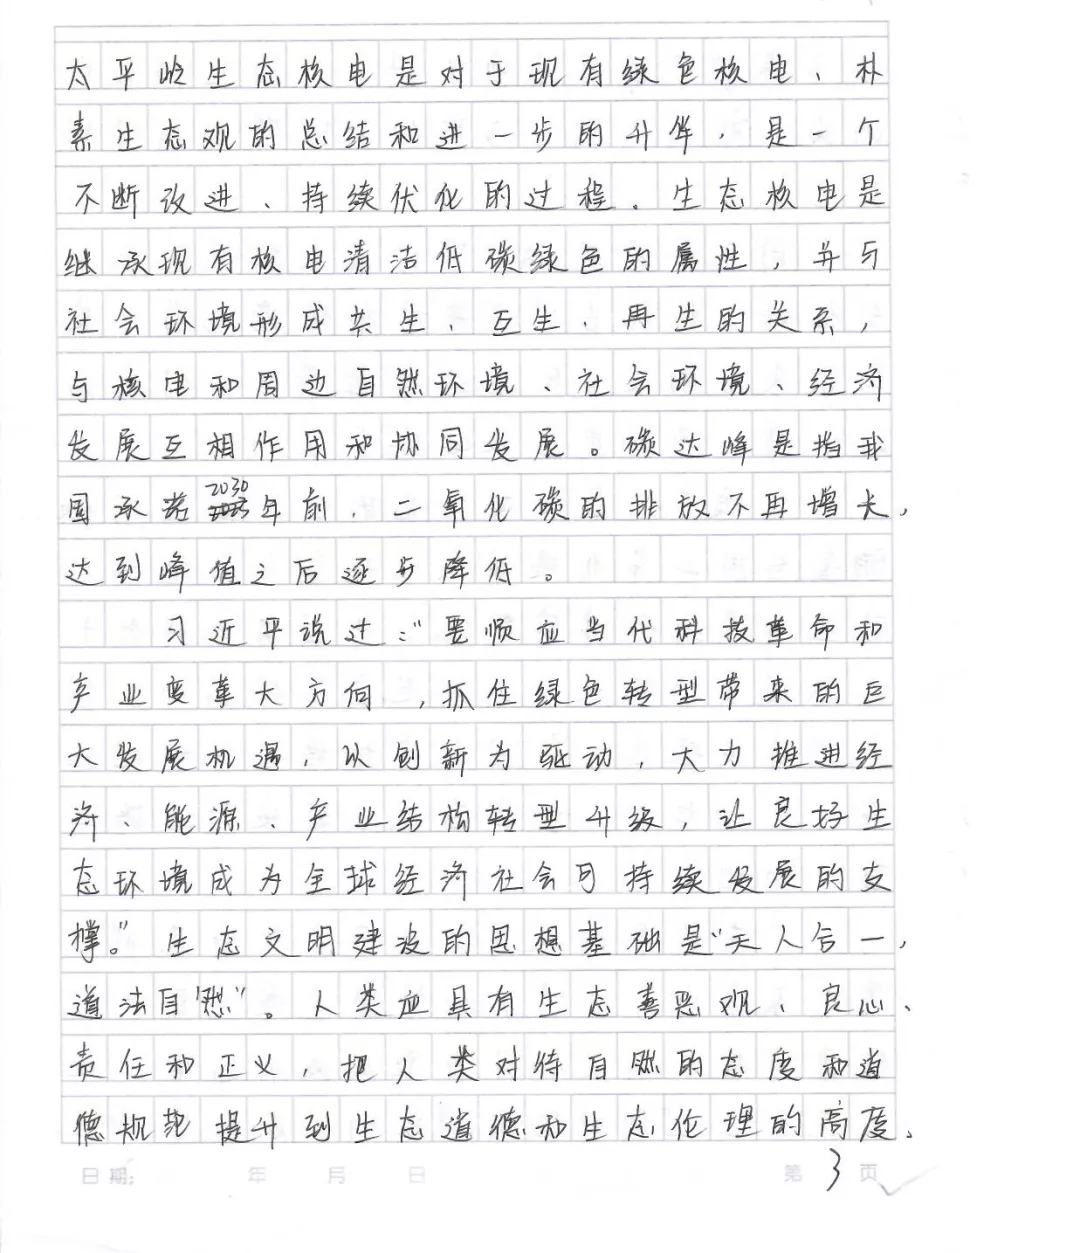 太平岭生态核电是对于现有绿色核电、朴
素生态观的总结和进一步的升华，是一个
不断改进、持续优化的过程。生态核电是
继承现有核电清洁低碳绿色的属性，并与
社会环境形成共生、互生、再生的关系，
与核电和周边自然环境、社会环境、经济
发展互相作用和协同发展。碳达峰是指我
国承诺2030年前，二氧化碳的排放不再增长，
达到峰值之后逐步降低。
习近平说过：“要顺应当代科技革命和
产业变革大方向，抓住绿色转型带来的巨
大发展机遇，以创新为驱动，大力推进经
济、能源、产业结构转型升级，让良好生
态环境成为全球经济社会可持续发展的支
撑。”生态文明建设的思想基础是“天人合一，
道法自然”。人类应具有生态善恶观、良心、
责任和正义，把人类对待自然的态度和道
德规范提升到生态道德和生态伦理的高度。
日期： 年 月 日 第3页